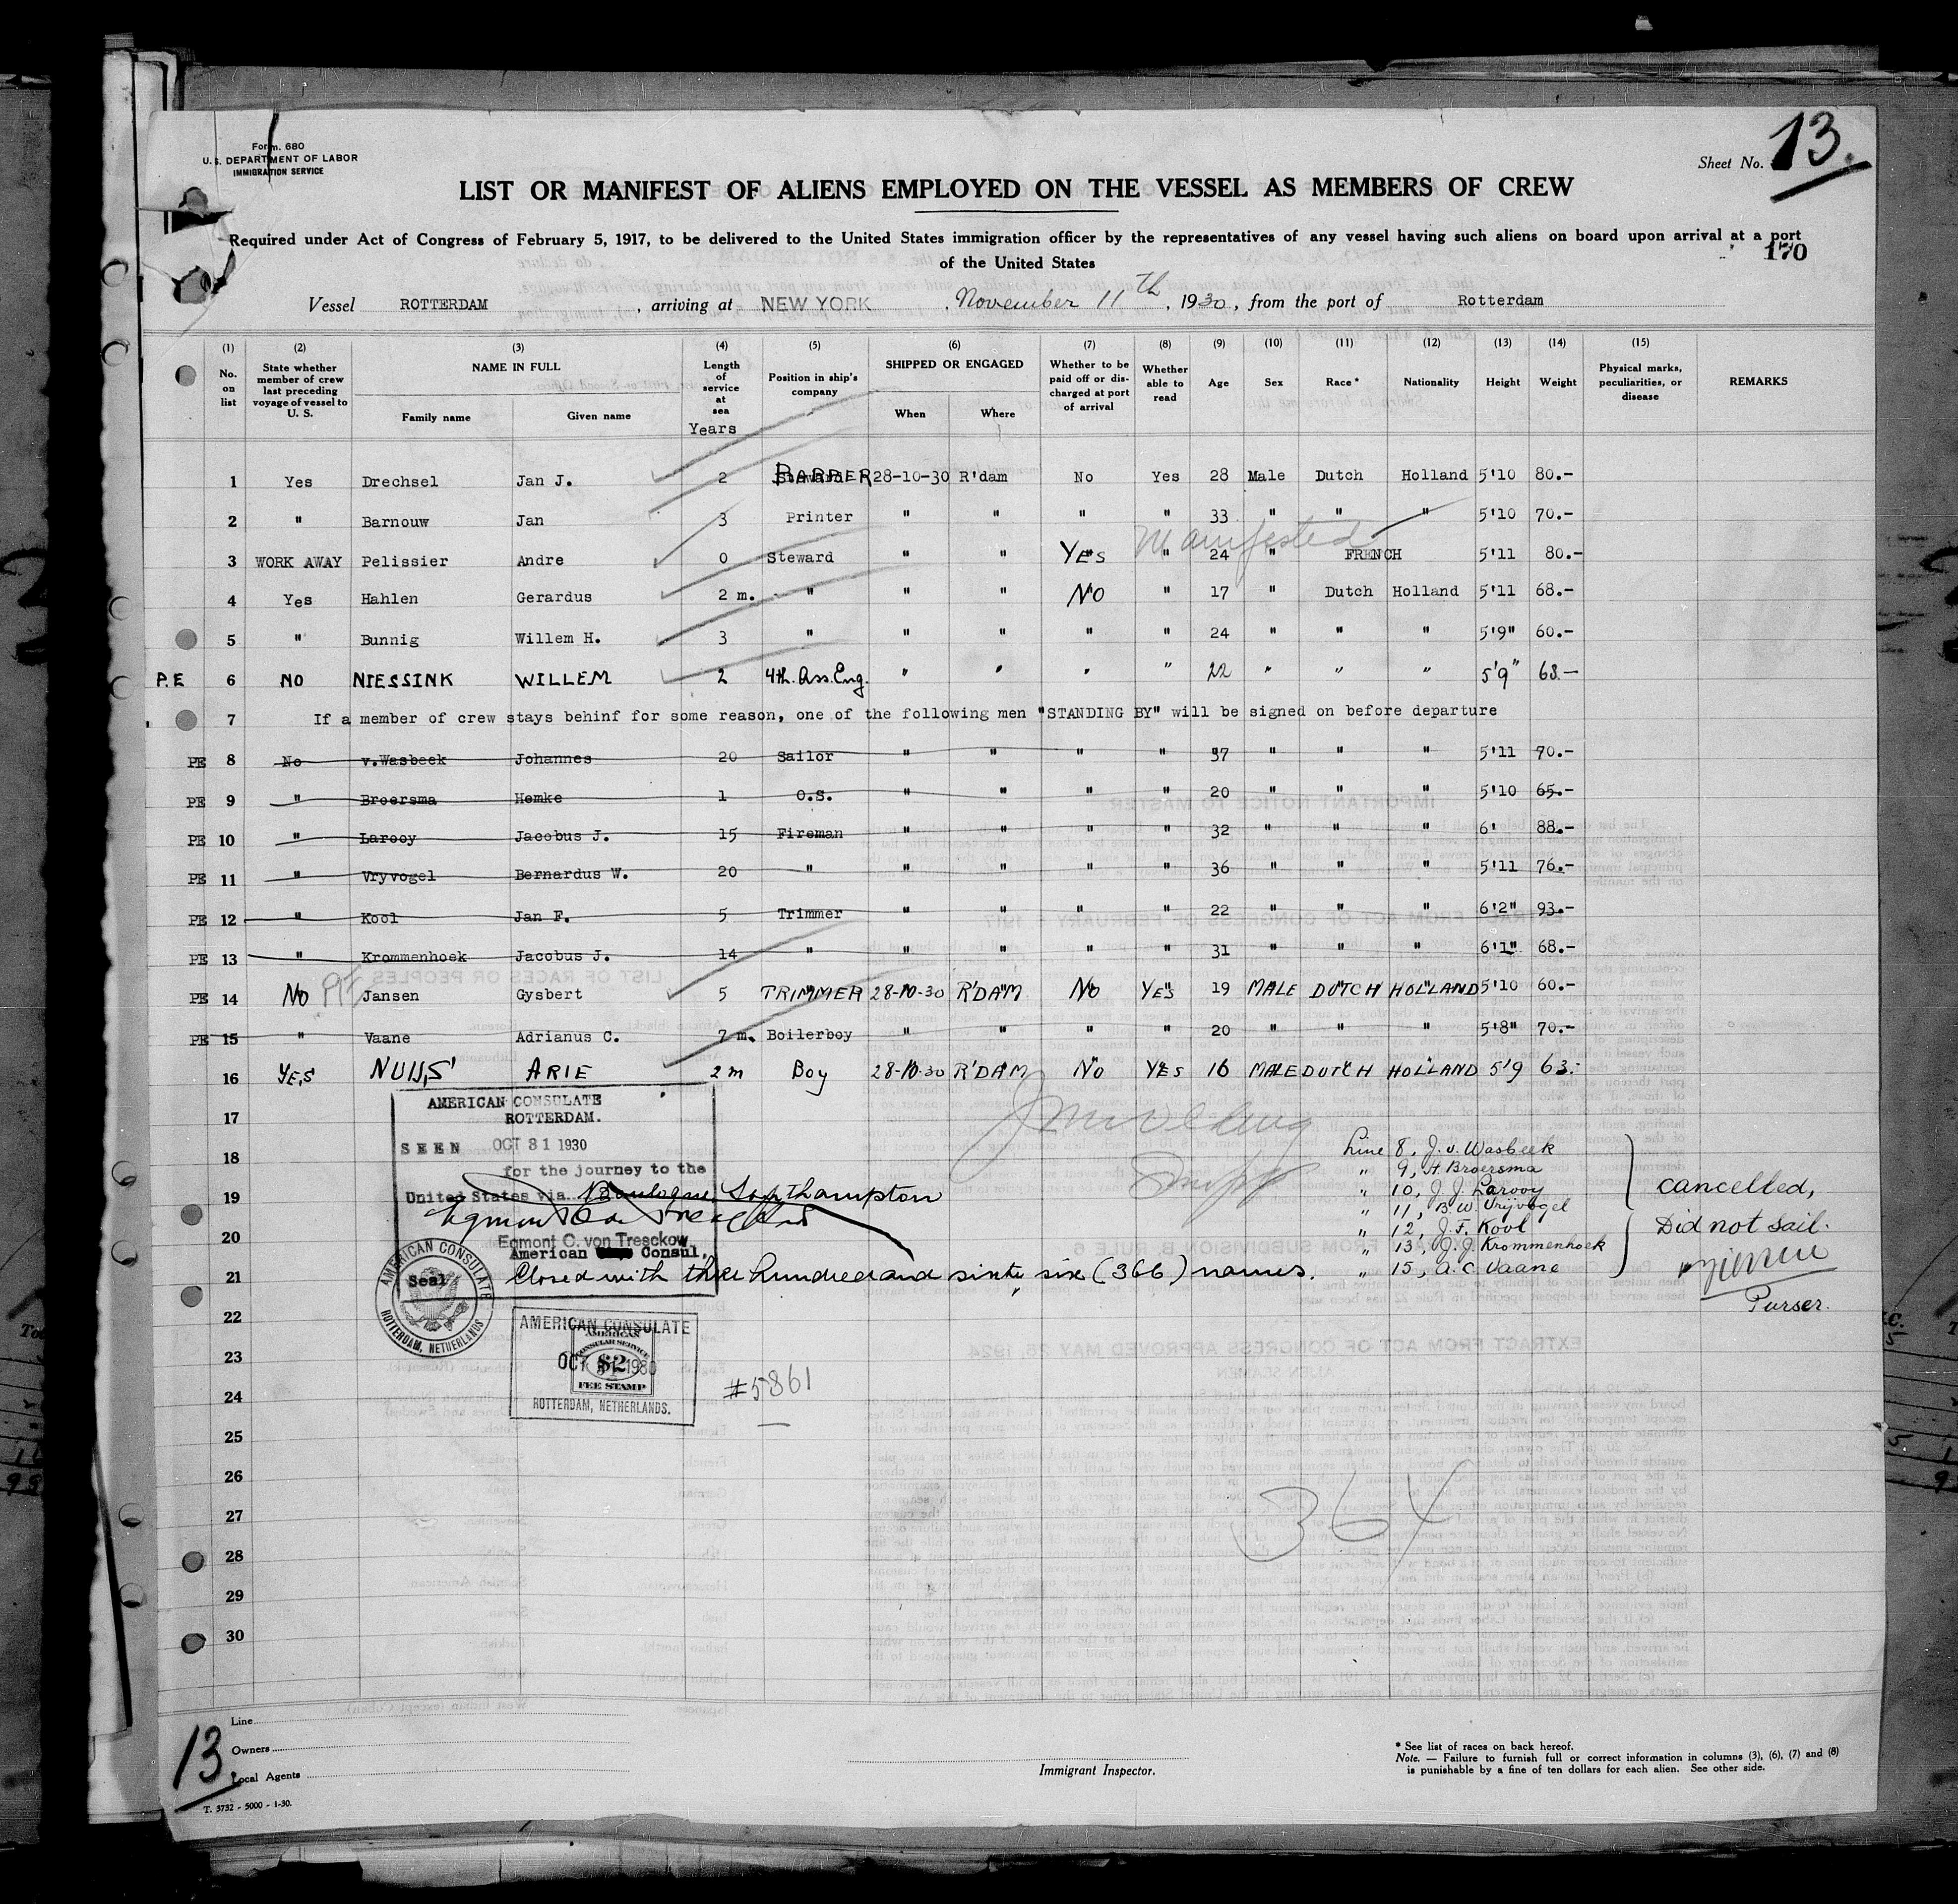 Form. 680
U.S. DEPARTMENT OF LABOR
IMMIGRATION SERVICE
Sheet No. 13.
LIST OR MANIFEST OF ALIENS EMPLOYED ON THE VESSEL AS MEMBERS OF CREW
Required under Act of Congress of February 5, 1917, to be delivered to the United States immigration officer by the representatives of any vessel having such aliens on board upon arrival at a port
of the United States
170
Vessel ROTTERDAM, arriving at NEW YORK, November 11th, 1930, from the port of Rotterdam
(1) (2) (3) (4) (5) (6) (7) (8) (9) (10) (11) (12) (13) (14) (15)
No. on list State whether member of crew last preceding voyage of vessel to U. S. NAME IN FULL Family name Given name Length of service at sea Position in ship's company SHIPPED OR ENGAGED When Where Whether to be paid off or discharged at port of arrival Whether able to read Age Sex Race* Nationality Height Weight Physical marks, peculiarities, or disease REMARKS
Years
1 Yes Drechsel Jan J. 2 BARBER 28-10-30 R'dam No Yes 28 Male Dutch Holland 5'10 80.-
2 " Barnouw Jan 3 Printer " " " " 33 " " " 5'10 70.-
Manifested
3 WORK AWAY Pelissier Andre 0 Steward " " YES " 24 " FRENCH 5'11 80.-
4 Yes Hahlen Gerardus 2 m. " " " NO " 17 " Dutch Holland 5'11 68.-
5 " Bunnig Willem H. 3 " " " " " 24 " " " 5'9" 60.-
P.E 6 NO NIESSINK WILLEM 2 4th. Ass. Eng. " " " " 22 " " " 5'9" 68.-
7 If a member of crew stays behinf for some reason, one of the following men "STANDING BY" will be signed on before departure
PE 8 No v.Wasbeek Johannes 20 Sailor " " " " 37 " " " 5'11 70.-
PE 9 " Broersma Hemke 1 O.S. " " " " 20 " " " 5'10 65.-
PE 10 " Larooy Jacobus J. 15 Fireman " " " " 32 " " " 6' 88.-
PE 11 " Vryvogel Bernardus W. 20 " " " " " 36 " " " 5'11 76.-
PE 12 " Kool Jan F. 5 Trimmer " " " " 22 " " " 6'2" 93.-
PE 13 " Krommenhoek Jacobus J. 14 " " " " " 31 " " " 6'1" 68.-
PE 14 No Jansen Gysbert 5 TRIMMER 28-10-30 R'DAM No YES 19 MALE DUTCH HOLLAND 5'10 60.-
PE 15 " Vaane Adrianus C. 7 m. Boilerboy " " " " 20 " " " 5'8" 70.-
16 YES NUIJS ARIE 2 m Boy 28-10-30 R'DAM No YES 16 MALE DUTCH HOLLAND 5'9 63.-
17
18
19
20
21
22
23
24
25
26
27
28
29
30
AMERICAN CONSULATE
ROTTERDAM.
SEEN OCT 31 1930
for the journey to the
United States via Boulogne, Southampton
Egmont C. von Tresckow
Egmont C. von Tresckow
American Consul,
Seal
AMERICAN CONSULATE
ROTTERDAM, NETHERLANDS
Closed with three hundred and sixty six (366) names.
Line 8, J. v. Wasbeek
" 9, H. Broersma
" 10, J. J. Larooy
" 11, B. W. Vrijvogel
" 12, J. F. Kool
" 13, J. J. Krommenhoek
" 15, A. C. Vaane
cancelled,
Did not sail.
Purser.
AMERICAN CONSULATE
AMERICAN
CONSULAR SERVICE
OCT 31 1930
$2
FEE STAMP
ROTTERDAM, NETHERLANDS.
#5861
364
Line
Owners
Local Agents
13.
T. 3732 - 5000 - 1-30.
Immigrant Inspector.
* See list of races on back hereof.
Note. — Failure to furnish full or correct information in columns (3), (6), (7) and (8)
is punishable by a fine of ten dollars for each alien. See other side.